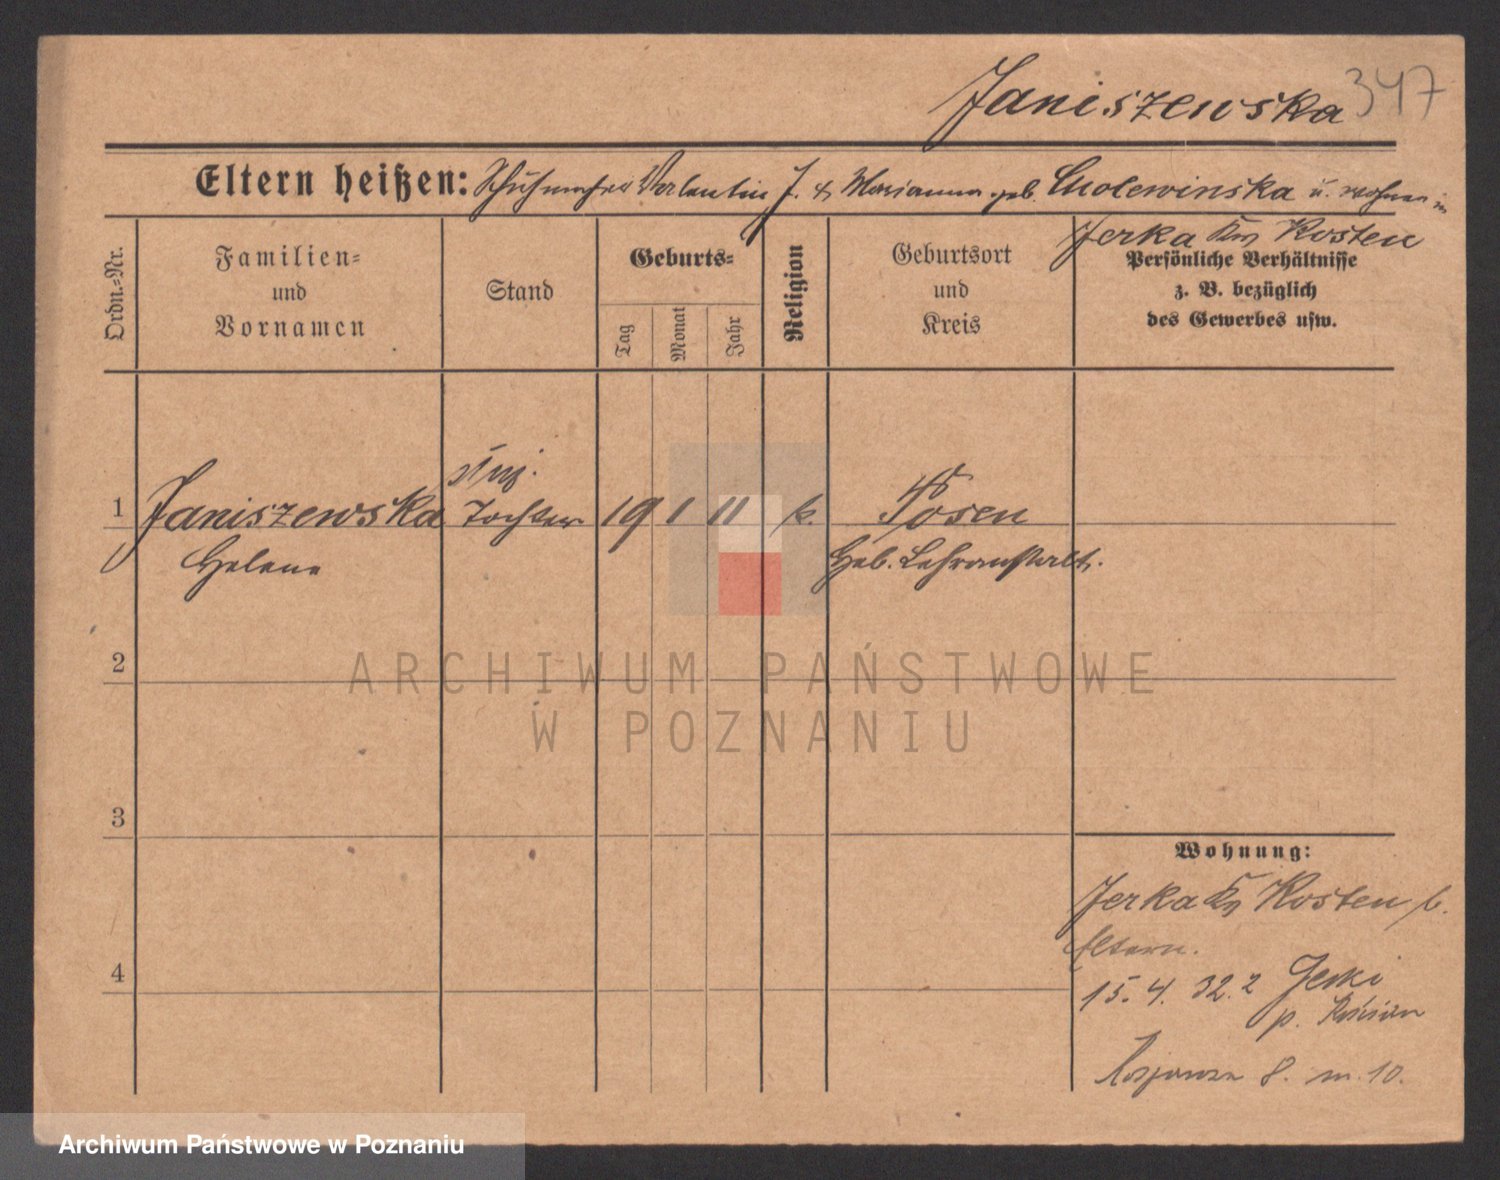 Janiszewska 347
Eltern heißen: Schuhmacher Valentin J. & Marianna geb. Cholewinska u. wohnen in
Jerka Krs Kosten
Ordn.-Nr.
Familien-
und
Vornamen
Stand
Geburts-
Tag
Monat
Jahr
Religion
Geburtsort
und
Kreis
Persönliche Verhältnisse
z. B. bezüglich
des Gewerbes usw.
1
Janiszewska
Helene
Tochter
19 1 11
k.
Posen
Heb. Lehranstalt.
2
3
4
Wohnung:
Jerka Krs Kosten b.
Eltern.
15. 4. 32. z Jerki
p. Kościan
8. m. 10.
ARCHIWUM PAŃSTWOWE
W POZNANIU
Archiwum Państwowe w Poznaniu